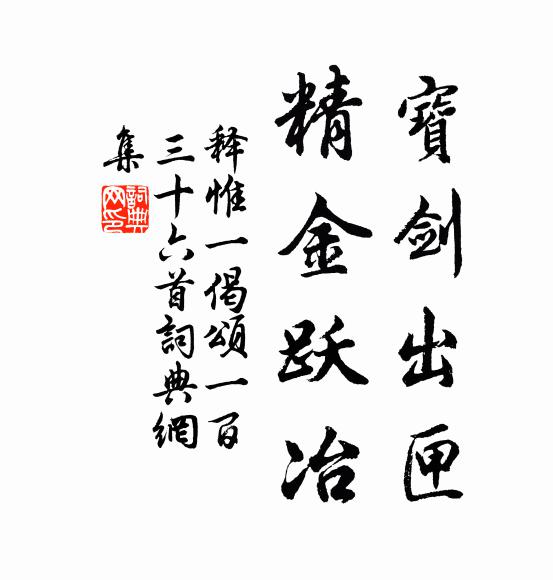 寶劍出匣
精金跃冶
释惟一偈頌一百
三十六首詞典網
集
詞典
网印